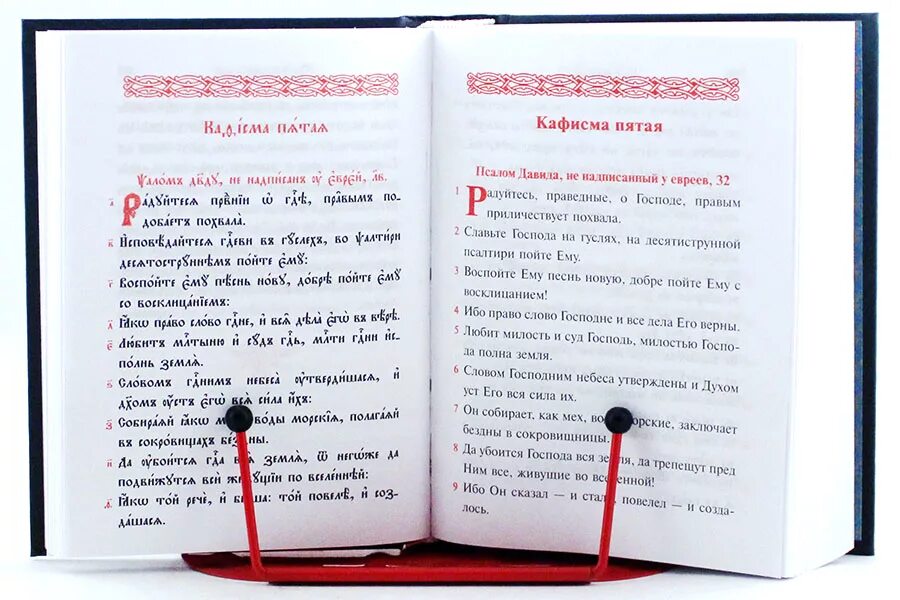 Каѳі́сма пѧ́таѧ
Ѱало́мъ дв҃ду, не надпи́санъ ᲂу҆ є҆вре́й, л҃в.
а҃ Ра́дуйтесѧ првⷣнїи ѡ҆ гдⷭ҇ѣ, пра̑вымъ по-
доба́етъ похвала̀.
в҃ И҆сповѣ́дайтесѧ гдⷭ҇еви въ гꙋ́слехъ, во ѱалти́ри
десѧтострꙋ́ннѣмъ по́йте є҆мꙋ̀.
г҃ Воспо́йте є҆мꙋ̀ пѣ́снь но́вꙋ, до́брѣ по́йте є҆мꙋ̀
со восклица́нїемъ:
д҃ Ꙗ҆́кѡ пра́во сло́во гдⷭ҇не, и҆ всѧ̑ дѣла̀ є҆гѡ̀ въ вѣ́рѣ.
є҃ Лю́битъ млⷭ҇тыню и҆ сꙋ́дъ гдⷭ҇ь, млⷭ҇ти гдⷭ҇ни и҆с-
по́лнь землѧ̀.
ѕ҃ Сло́вомъ гдⷭ҇нимъ небеса̀ ᲂу҆тверди́шасѧ, и҆
дх҃омъ ᲂу҆́стъ є҆гѡ̀ всѧ̀ си́ла и҆́хъ:
з҃ Собира́ѧй ꙗ҆́кѡ во́ды морскі̑ѧ, полага́ѧй
въ сокро́вищахъ
и҃ Да ᲂу҆бои́тсѧ гдⷭ҇а всѧ̀ землѧ̀, ѿ негѡ́же да
подви́жꙋтсѧ всѝ живꙋ́щїи по вселе́ннѣй:
ѳ҃ Ꙗ҆́кѡ то́й речѐ, и҆ то́й повелѣ̀, и҆ созда́-
шасѧ.
Кафисма пятая
Псалом Давида, не надписанный у евреев, 32
1 Радуйтесь, праведные, о Господе, правым
приличествует похвала.
2 Славьте Господа на гуслях, на десятиструнной
псалтири пойте Ему.
3 Воспойте Ему песнь новую, добре пойте Ему с
восклицанием!
4 Ибо право слово Господне и все дела Его верны.
5 Любит милость и суд Господь, милостью Госпо-
да полна земля.
6 Словом Господним небеса утверждены и Духом
уст Его вся сила их.
7 Он собирает, как мех, заключает
бездны в сокровищницы.
8 Да убоится Господа вся земля, да трепещут пред
Ним все, живущие во вселенной!
9 Ибо Он сказал — и стали, повелел — и созда-
лось.